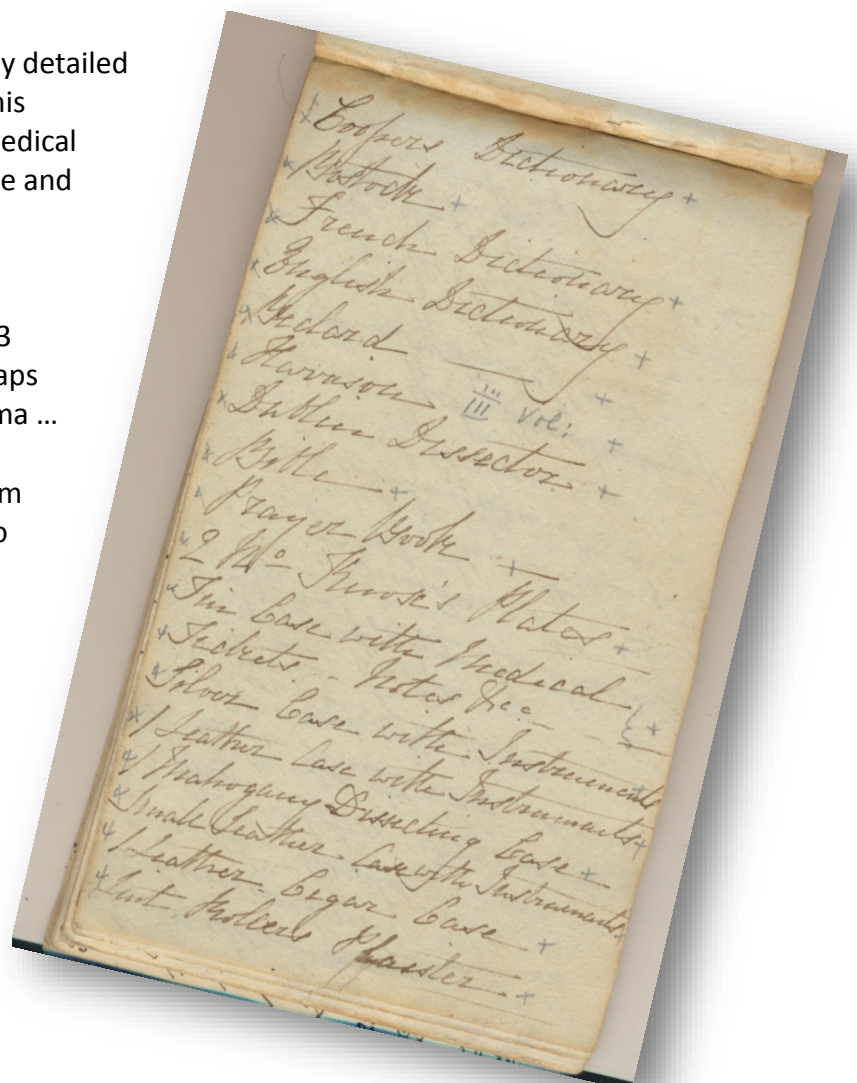 y detailed
his
edical
e and
3
aps
ma ...
m
o
Coopers Dictionary +
x Bostock +
x French Dictionary +
x English Dictionary +
x Beclard +
x Harrison III Vol: +
x Dublin Dissector +
x Bible +
x Prayer Book +
x 2 Mo Knox's Plates +
x Tin Case with Medical
x Tickets - Notes &c - +
x Silver Case with Instruments +
x 1 Leather Case with Instruments +
x 1 Mahogany Dissecting Case +
x Small Leather Case with Instruments
x 1 Leather Cigar Case +
x Lint Plaister +